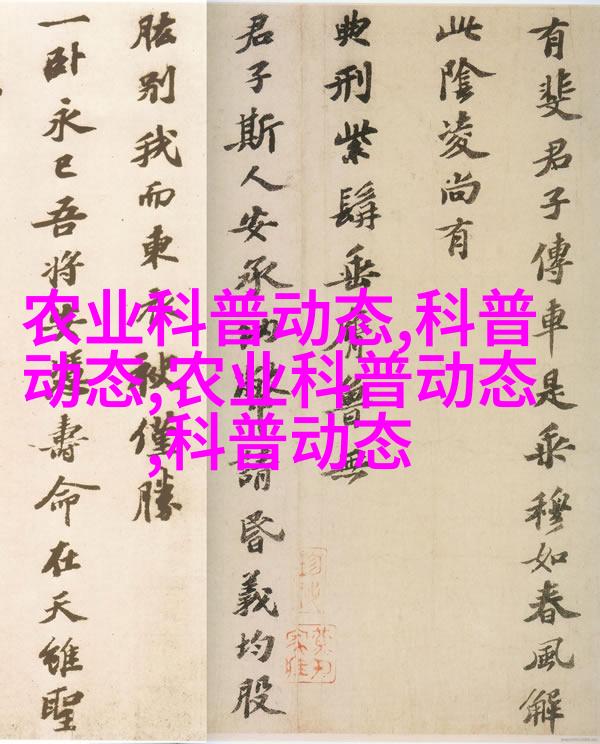 有斐君子傳車是乘穆如春風解
此陰凌尚有
典刑紫髯垂膺魯無
君子斯人安承納幣請昏義均股
肱别我而東衣袂僅勝
一卧永已吾將安憑壽命在天雖聖
农业科普动态,科普
动态,农业科普动态
,科普动态